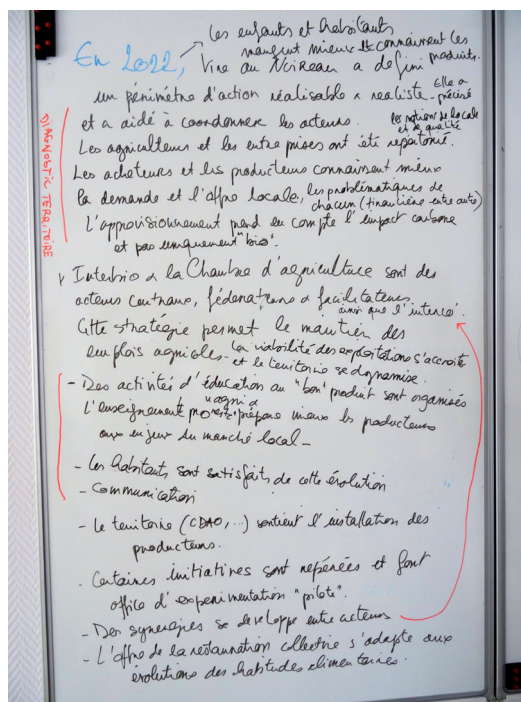 Les enfants et habitants
mangent mieux et connaissent les
produits.
En 2022,
Vire au Noireau a defini
un périmètre d'action réalisable & realiste - Elle a
précisé
les notions de locale
et de qualité
et a aidé à coordonner les acteurs.
Les agriculteurs et les entreprises ont été repertorié.
Les acheteurs et les producteurs connaissent mieux
la demande et l'offre locale, les problématiques de
chacun (financière entre autre)
L'approvisionnement prend en compte l'impact carbone
et pas uniquement "bio".
DIAGNOSTIC TERRITOIRE
Interbio & la Chambre d'agriculture sont des
acteurs centraux, fédérateurs & facilitateurs
ainsi que l'interco.
Cette stratégie permet le maintien des
emplois agricoles - la viabilité des exploitations s'accroite
et le territoire se dynamise.
- Des activités d'éducation au "bon" produit sont organisés
L'enseignement prépare mieux les producteurs
aux enjeux du marché local -
- Les habitants sont satisfaits de cette évolution
- Communication
- Le territoire (CDAO, ...) soutient l'installation des
producteurs.
- Certaines initiatives sont repérées et font
office d'experimentation "pilote".
- Des synergies se developpe entre acteurs
- L'offre de la restauration collective s'adapte aux
évolutions des habitudes alimentaires.